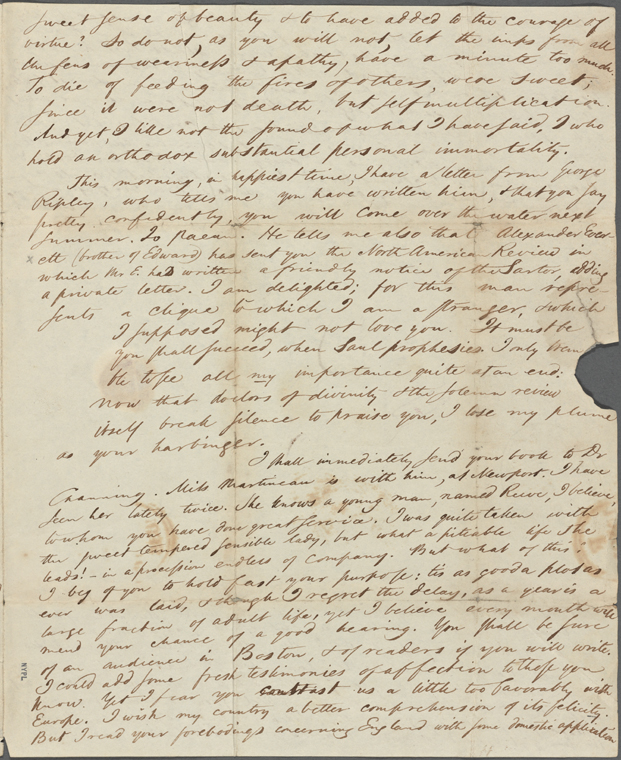 sweet sense of beauty & to have added to the courage of
virtue? So do not, as you will not, let the imps from all
the fens of weariness & apathy, have a minute too much.
To die of feeding the fires of others, were sweet;
since it were not death, but self multiplication.
And yet, I like not the sound of what I have said, I who
hold an orthodox substantial personal immortality.
This morning, in happiest time, I have a letter from George
Ripley, who tells me you have written him, & that you say
pretty confidently, you will come over the water next
summer. Io paean. He tells me also that Alexander Ever-
x ett (brother of Edward) has sent you the North American Review in
which Mr E. had written a friendly notice of the Sartor, adding
a private letter. I am delighted; for this man repre-
sents a clique to which I am a stranger, & which
I supposed might not love you. It must be
you shall succeed, when Saul prophesies. I only
ble to see all my importance quite at an end:
now that doctors of divinity & the solemn review
itself break silence to praise you, I lose my plume
as your harbinger.
I shall immediately send your book to Dr
Channing. Miss Martineau is with him, at Newport. I have
seen her lately twice. She knows a young man, named Reeve, I believe,
to whom you have done great service. I was quite taken with
the sweet tempered sensible lady, but what a pitiable life she
leads! – in a procession endless of Company. But what of this
I beg of you to hold fast your purpose: tis as good a plot as
ever was laid, & though I regret the delay, as a year is a
large fraction of adult life, yet I believe every month will
mend your chance of a good hearing. You shall be sure
of an audience in Boston, & of readers if you will write.
I could add some fresh testimonies of affection to those you
know. Yet I fear you contrast us a little too favorably with
Europe. I wish my country a better comprehension of its felicity.
But I read your forebodings concerning England with some domestic application
NYPL